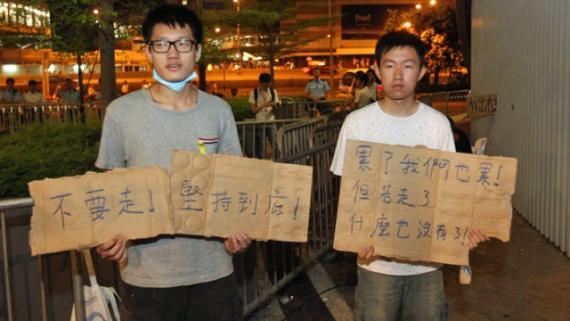 不要走！堅持到底！
累？我們也累！
但若走了
什麼也沒有了！